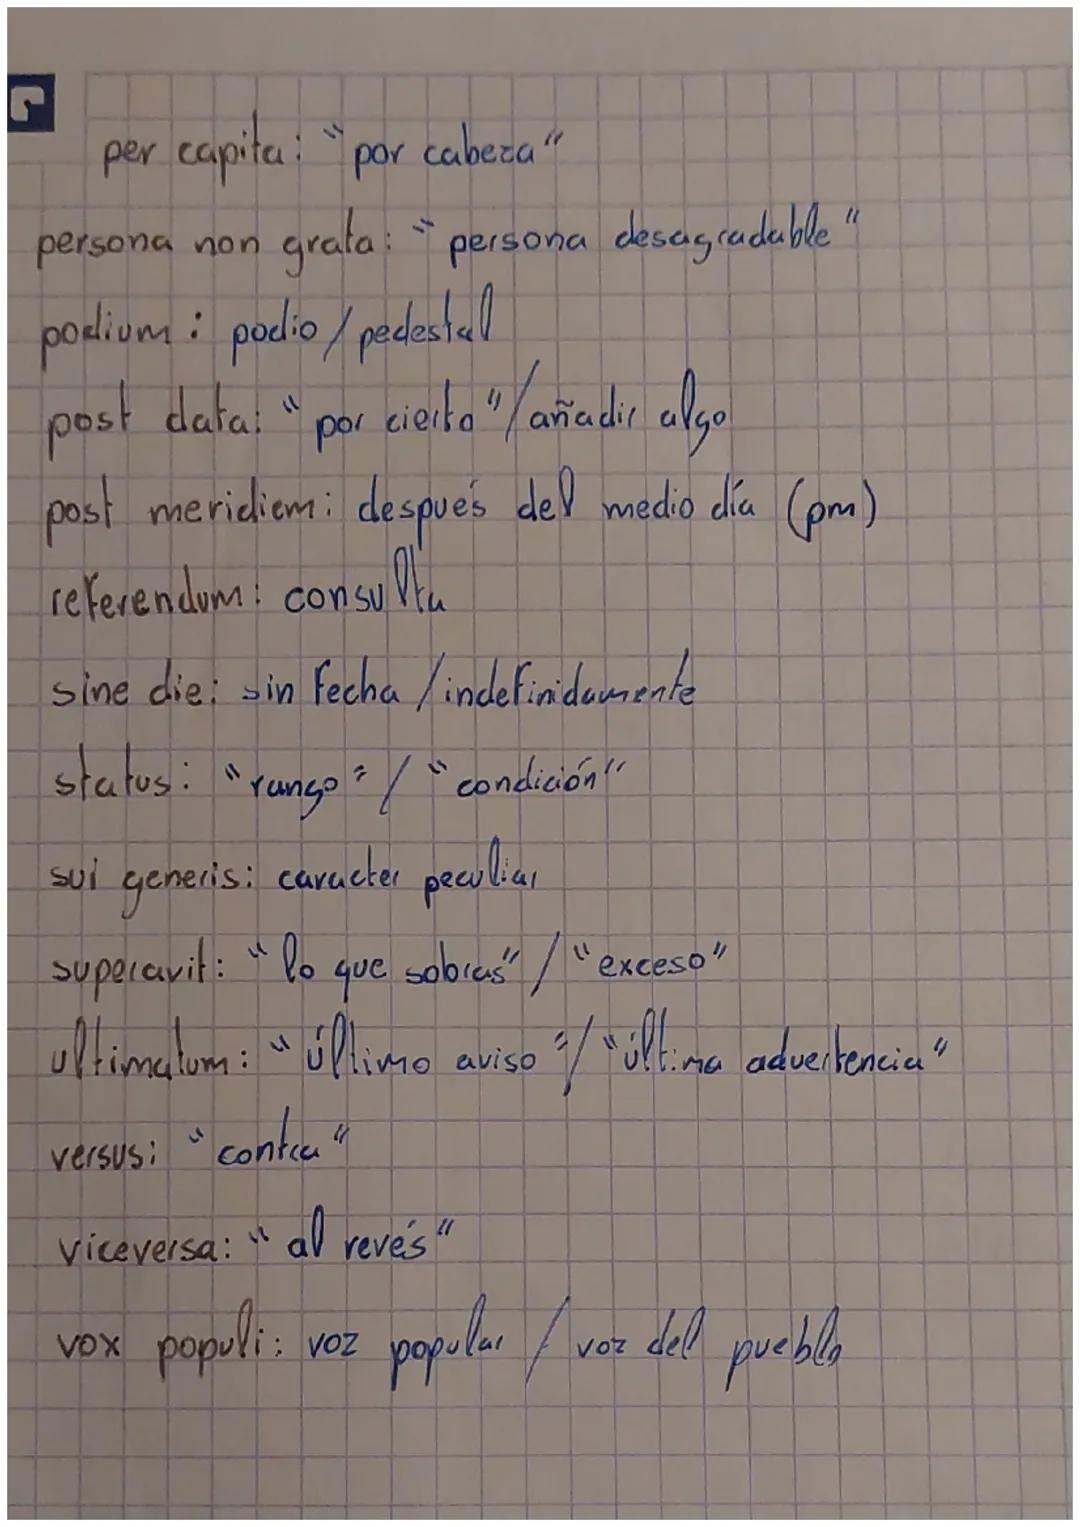 per capita: "por cabeza"
persona non grata: "persona desagradable"
podium: podio/pedestal
post data: "por cierto"/añadir algo
post meridiem: después del medio día (pm)
referendum: consulta
sine die: sin fecha/indefinidamente
status: "rango"/"condición"
sui generis: caracter peculiar
superavit: "lo que sobras"/"exceso"
ultimatum: "último aviso"/"última advertencia"
versus: "contra"
viceversa: "al revés"
vox populi: voz popular / voz del pueblo